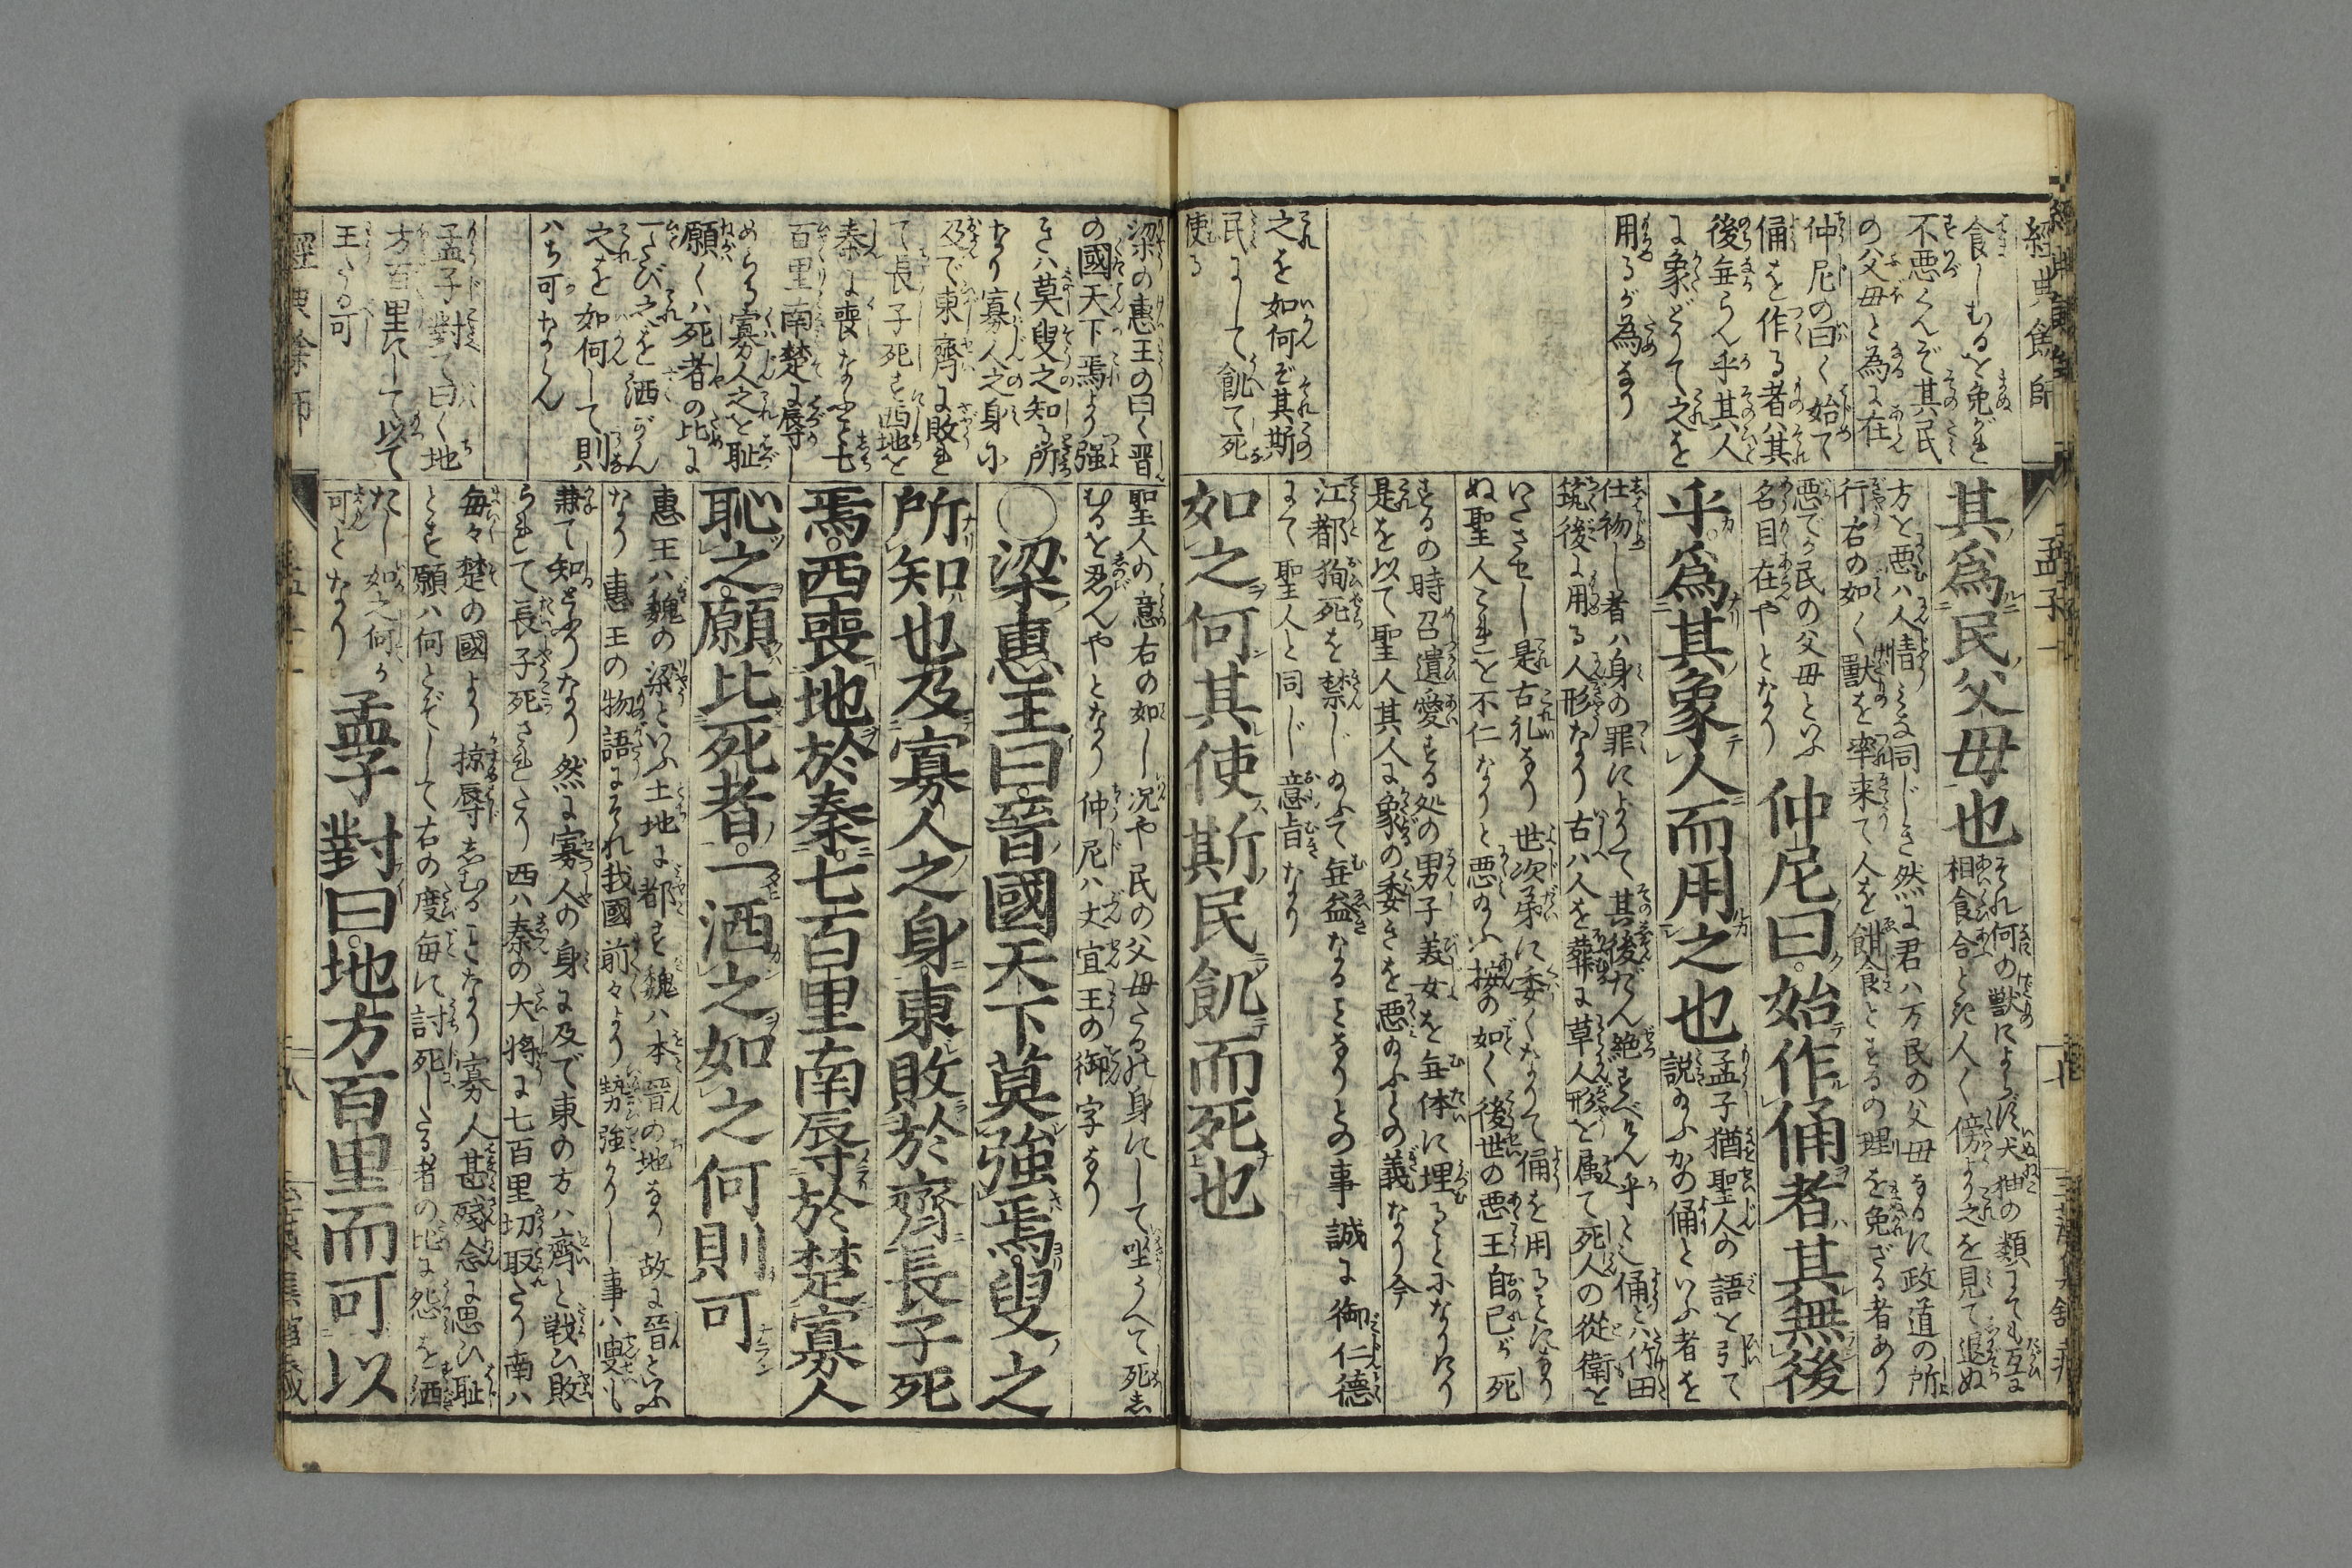 經典餘師
食しむるを免がれ
不悪くんぞ其民
の父母と為に在
仲尼の曰く始て
俑を作る者ハ其
後毎らん乎其人
に象どりて之を
用るが為なり
之を如何ぞ其斯
民にして飢て死
使る
孟子一
其爲民父毋也
それ何の獣によらず犬猫の類にても互に
相食合とき人々傍より之を見て退ぬ
方を悪むハ人情ミな同じき然に君ハ万民の父母なるに政道の所
行右の如く獣を率来て人を餌食とするの理を免ざる者あり
悪でか民の父母といふ
名目在やとなり
仲尼曰始作俑者其無後
乎爲其象人而用之也
孟子猶聖人の語を引て
説のふかの俑といふ者を
仕初し者ハ身の罪によりて其後だん絶すべけん乎と也俑とハ竹田
筑後に用る人形なり古ハ人を葬に草人形を属て死人の從衛と
いたさせし是古礼なり世次弟に委くなりて俑を用るとになり
ぬ聖人これを不仁なりと悪のふ按の如く後世の悪王自己が死
するの時召遺愛する処の男子義女を毎体に埋ることになりけり
是を以て聖人其人に象の委きを悪のふとの義なり今
江都殉死を禁じのふて毎益なることなりとの事誠に御仁德
にて聖人と同じ意旨なり
如之何其使斯民飢而死也
梁の惠王の曰く晋
の國天下焉より强
きハ莫叟之知る所
なり寡人之身に
及で東齊に敗れ
て長子死す西地を
秦に喪なふこと七
百里南楚に辱
めらる寡人之を恥
願くハ死者の比に
一たび之を洒がん
之を如何して則
ハち可ならん
孟子對て曰く地
方百里にして以て
王たる可
聖人の意右の如し况や民の父母たるれ身にして坐うへて死し
むるを忍んやとなり仲尼ハ丈宣王の御字なり
○梁惠王曰晉國天下莫強焉叟之
所知也及寡人之身東敗於齊長子死
焉西喪地於秦七百里南辱於楚寡人
恥之願比死者一洒之如之何則可
惠王ハ魏の梁といふ土地に都す魏ハ本晋の地なり故に晉といふ
なり惠王の物語にそれ我國前々より勢強かりし事ハ叟も
兼て知ところなり然に寡人の身に及で東の方ハ齊と戦ひ敗
られて長子死されたり西ハ秦の大將に七百里切取たり南ハ
毎々楚の國より掠辱しむることなり寡人甚残念に思ひ恥
とす願ハ何とぞして右の度毎に討死したる者の比に怨を洒
たし如之何か
可となり
孟子對曰地方百里而可以
經典餘師